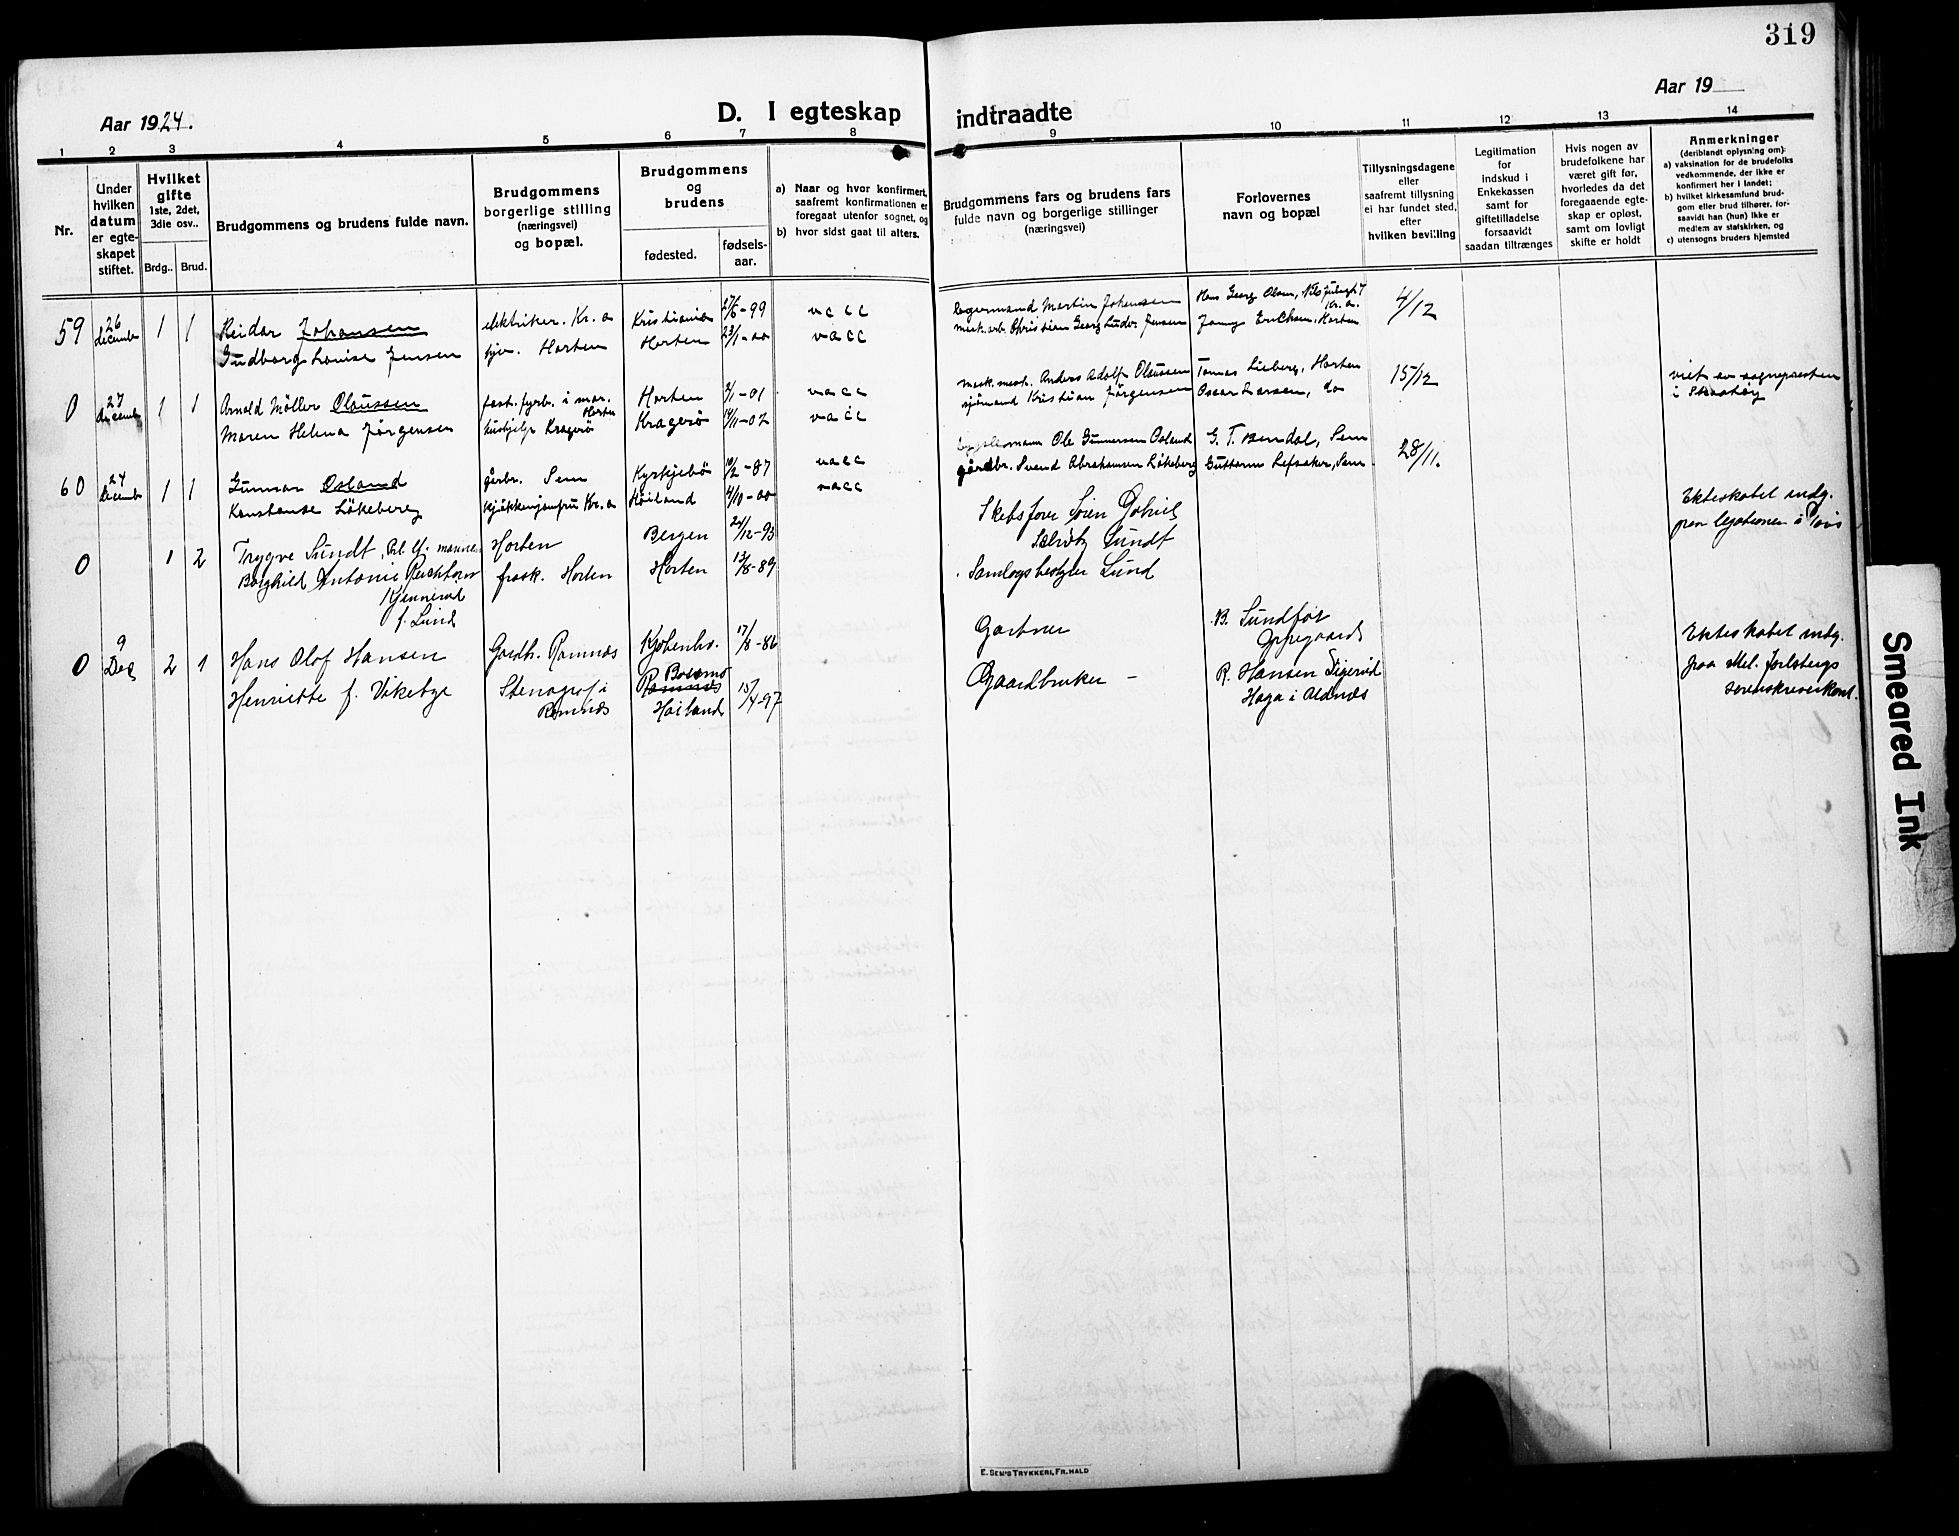 319
Aar 1924.
D. I egteskap indtraadte
Aar 19
1 2 3 4 5 6 7 8 9 10 11 12 13 14
Nr.
Under hvilken datum er egteskapet stiftet.
Hvilket gifte 1ste, 2det, 3die osv..
Brdg.. Brud.
Brudgommens og brudens fulde navn.
Brudgommens borgerlige stilling (næringsvei) og bopæl.
Brudgommens og brudens
fødested.
fødsels-aar.
a) Naar og hvor konfirmert, saafremt konfirmationen er foregaat utenfor sognet, og
b) hvor sidst gaat til alters.
Brudgommens fars og brudens fars fulde navn og borgerlige stillinger (næringsvei)
Forlovernes navn og bopæl
Tillysningsdagene eller saafremt tillysning ei har fundet sted, efter hvilken bevilling
Legitimation for indskud i Enkekassen samt for giftetilladelse forsaavidt saadan tiltrænges
Hvis nogen av brudefolkene har været gift før, hvorledes da det foregaaende egteskap er opløst, samt om lovligt skifte er holdt
Anmerkninger (deriblandt oplysning om):
a) vaksination for de brudefolks vedkommende, der ikke er konfirmert her i landet;
b) hvilket kirkesamfund brudgom eller brud tilhører, forsaavidt han (hun) ikke er medlem av statskirken, og
c) utensogns bruders hjemsted
59 26 december 1 1 Reidar Johansen elektriker. Kr.a Kristiania 27/6-99 vacc Martin Johansen Hans Georg Olsen, Kr.a. 4/12
Gudborg Louise Jensen Horten Horten 23/1-00 vacc Christian Georg Jensen Erichsen, Horten
0 27 december 1 1 Arnold Möller Olaussen fyrb. i mar. Horten Horten 2/1-01 vacc mask. mest. Anders Adolf Olaussen Tomas Lieberg, Horten 15/12 viet av sognepresten
Maren Helena Jørgensen hushjelp Kragerø Kragerö 14/11-02 vacc sjömand Kristian Jørgensen Oscar Larsen, do i Skaatöy
60 24 december 1 1 Gunnar Osland gårbr. Sem Kyrkjebö 10/2-87 vacc Ole Gunnersen Osland G. T. Sem 28/11.
Konstanse Løkeberg kjøkkenjomfru Kr.a Høiland 4/10-00 vacc gårdbr. Svend Abrahamsen Løkeberg Guttorm Lefsaker, Sem
0 1 2 Trygve Sundt, mannen Horten Bergen 24/12-93 Skibsfører Sören Gabriel Sundt Ekteskabet indg.
Borghild Antonie Kjennerud f. Lund frask. Horten Horten 13/8-89 Lund paa legationen i Paris
0 9 Des 2 1 Hans Olof Hansen Gardb. Ramnæs Kjøbenhv. 17/8-86 Gartner B. Sundför Oppegaard Ekteskabet indg.
Henriette f. Vikebye Stenograf i Ramnæs Ramnæs Høiland 15/4-97 Gaardbruker – R. Hansen Haga i Udnæs paa Mel. Jarlsbergs sorenskriverkont.
E. SEM'S TRYKKERI, FR. HALD
Smeared Ink